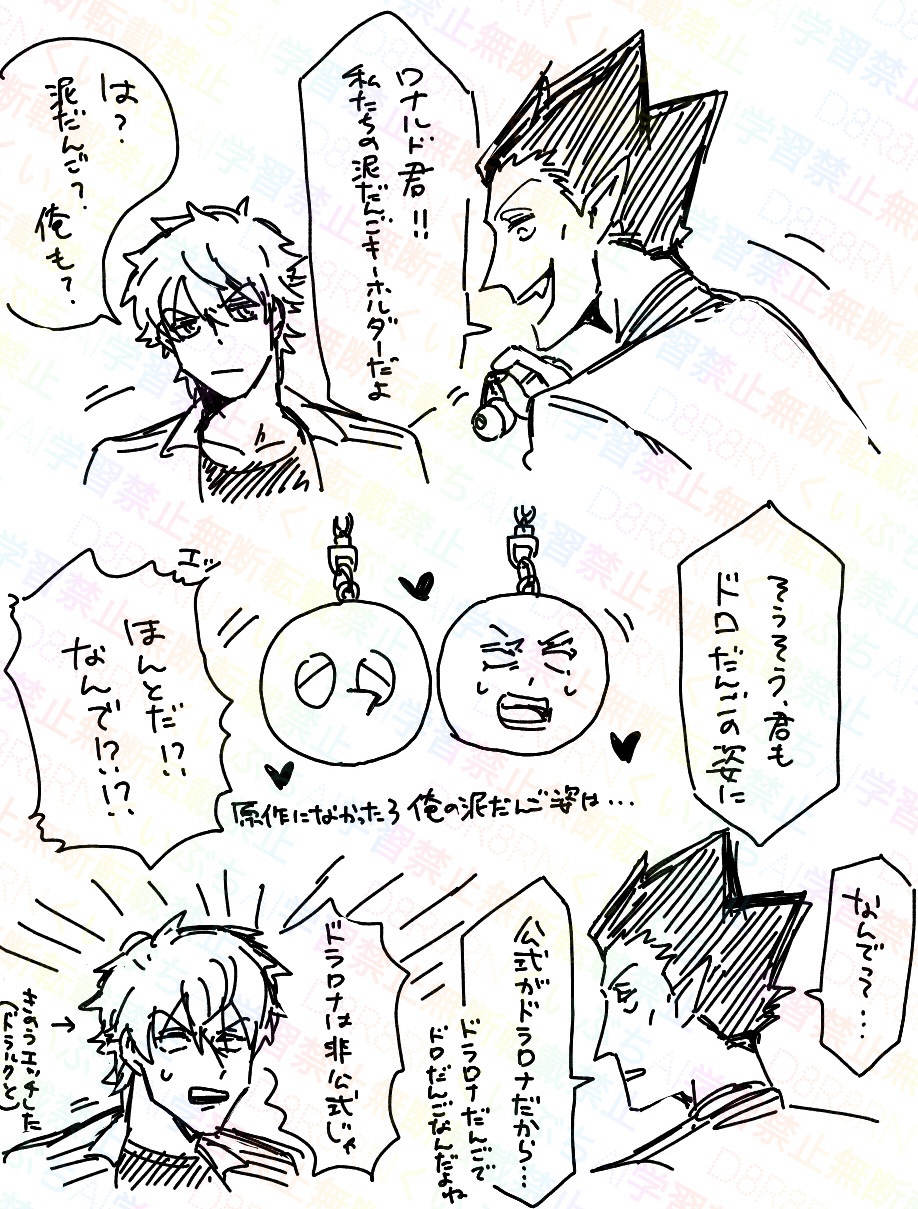 ロナルド君!!
私たちの泥だんごキーホルダーだよ
は?
泥だんご?
俺も?
そうそう、君も
ドロだんごの姿に
エッ
ほんとだ!?
なんで!?!?
原作になかったろ俺の泥だんご姿は…
なんでって…
公式がドラロナだから…
ドラロナだんごで
ドロだんごなんだよね
ドラロナは非公式じゃ
きのうエッチした
(ドラルクと)